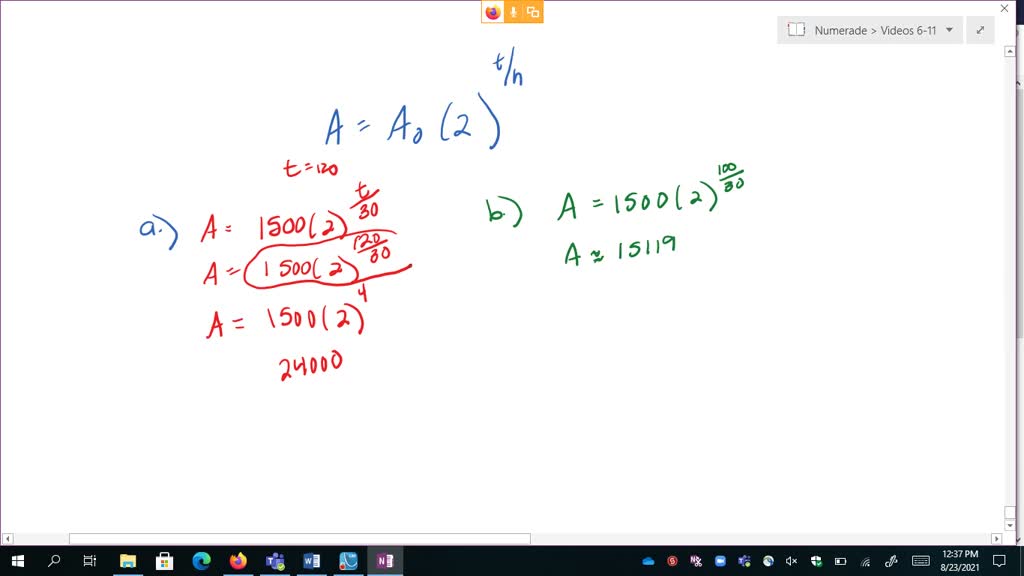 Numerade > Videos 6-11
A = A₀ (2)^(t/h)
t = 120
a.) A = 1500(2)^(t/30)
A = 1500(2)^(120/30)
A = 1500(2)^4
24000
b.) A = 1500(2)^(100/30)
A ≈ 15119
12:37 PM
8/23/2021